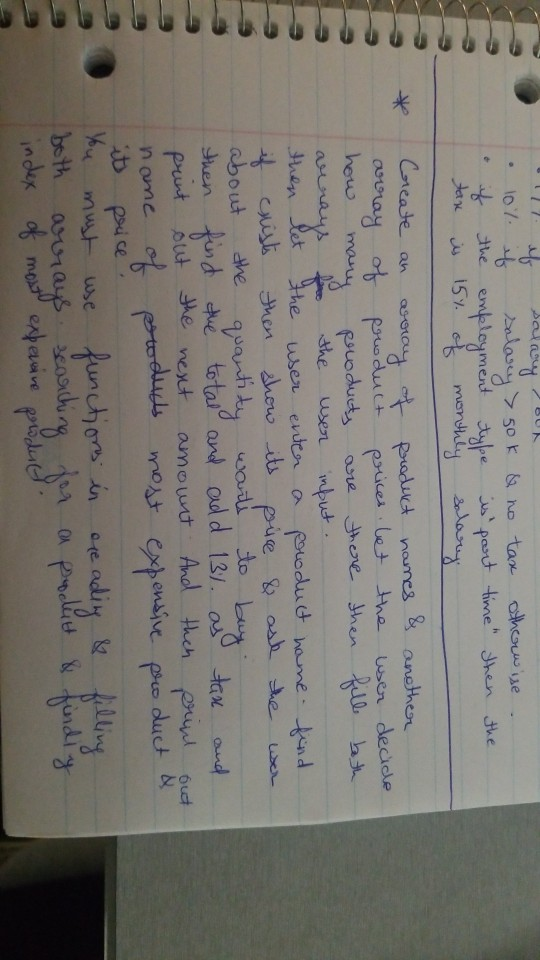 17% if salary > 60k
• 10% if salary > 50k & no tax otherwise.
• if the employment type is "part time" then the
tax is 15% of monthly salary
* Create an array of product names & another
array of product prices. let the user decide
how many products are there then fill both
arrays the user input.
then let the user enter a product name. find
if exists then show its price & ask the user
about the quantity wants to buy.
then find the total and add 13% as tax and
print out the next amount. And then print out
name of most expensive product &
its price.
You must use functions in creadig & filling
both arrays. searching for a product & findig
index of most expensive product.